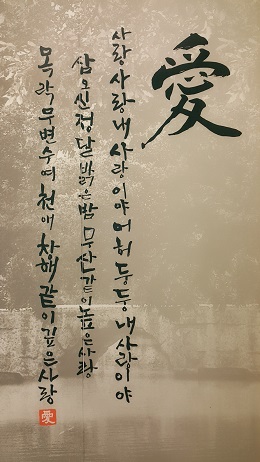 愛
사랑사랑내사랑이야어허둥둥내사랑이야
삼오신정달밝은밤 무산같이높은사랑
목락무변수여천애 창해같이깊은사랑
愛